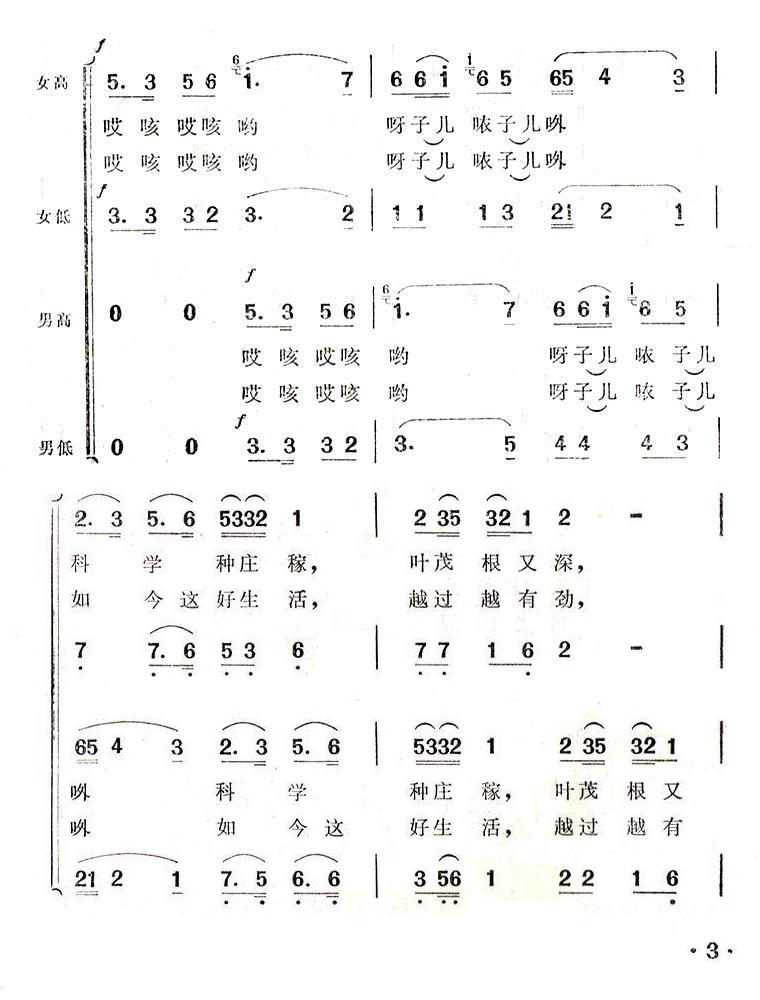 f
女高 5. 3 5 6 6 i. 7 | 6 6 i i 6 5 65 4 3 |
哎 咳 哎咳 哟 呀子儿 哝子儿㖿
哎 咳 哎咳 哟 呀子儿 哝子儿㖿
f
女低 3. 3 3 2 3. 2 | 1 1 1 3 21 2 1 |
f
男高 0 0 5. 3 5 6 | 6 i. 7 6 6 i i 6 5 |
哎 咳 哎咳 哟 呀子儿 哝 子儿
哎 咳 哎咳 哟 呀子儿 哝 子儿
f
男低 0 0 3. 3 3 2 | 3. 5 4 4 4 3 |
2. 3 5. 6 5332 1 | 2 35 32 1 2 - |
科 学 种庄 稼, 叶茂 根 又 深,
如 今这 好生 活, 越过 越 有 劲,
7 7. 6 5 3 6 | 7 7 1 6 2 - |
65 4 3 2. 3 5. 6 | 5332 1 2 35 32 1 |
㖿 科 学 种庄 稼, 叶茂 根 又
㖿 如 今这 好生 活, 越过 越 有
21 2 1 7. 5 6. 6 | 3 56 1 2 2 1 6 |
·3·